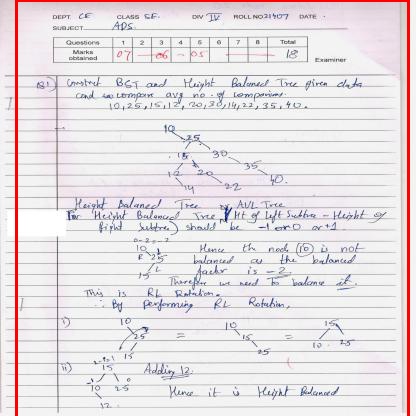 DEPT. CE CLASS SE. DIV IV ROLL NO 21407 DATE
SUBJECT ADS.
Questions 1 2 3 4 5 6 7 8 Total
Marks obtained 07 - 06 - 05 18
Examiner
Q1) Construct BST and Height Balanced Tree given data
and compare avg no. of comparisons.
10, 25, 15, 12, 20, 30, 14, 22, 35, 40.
10
25
15 30
12 20 35
14 22 40.
Height Balanced Tree or AVL Tree
For Height Balanced Tree (Ht of Left Subtree - Height of
Right Subtree) should be -1 or 0 or +1.
0-2=-2
10
R 25
15 L
Hence the node (10) is not
balanced as the balanced
factor is -2.
Therefore we need to balance it.
This is RL Rotation.
∴ By performing RL Rotation,
i) 10 10 15
25 = 15 = 10 25
15 25
ii) 2-1=1 Adding 12.
15
-1 10 25 0
12.
Hence it is Height Balanced